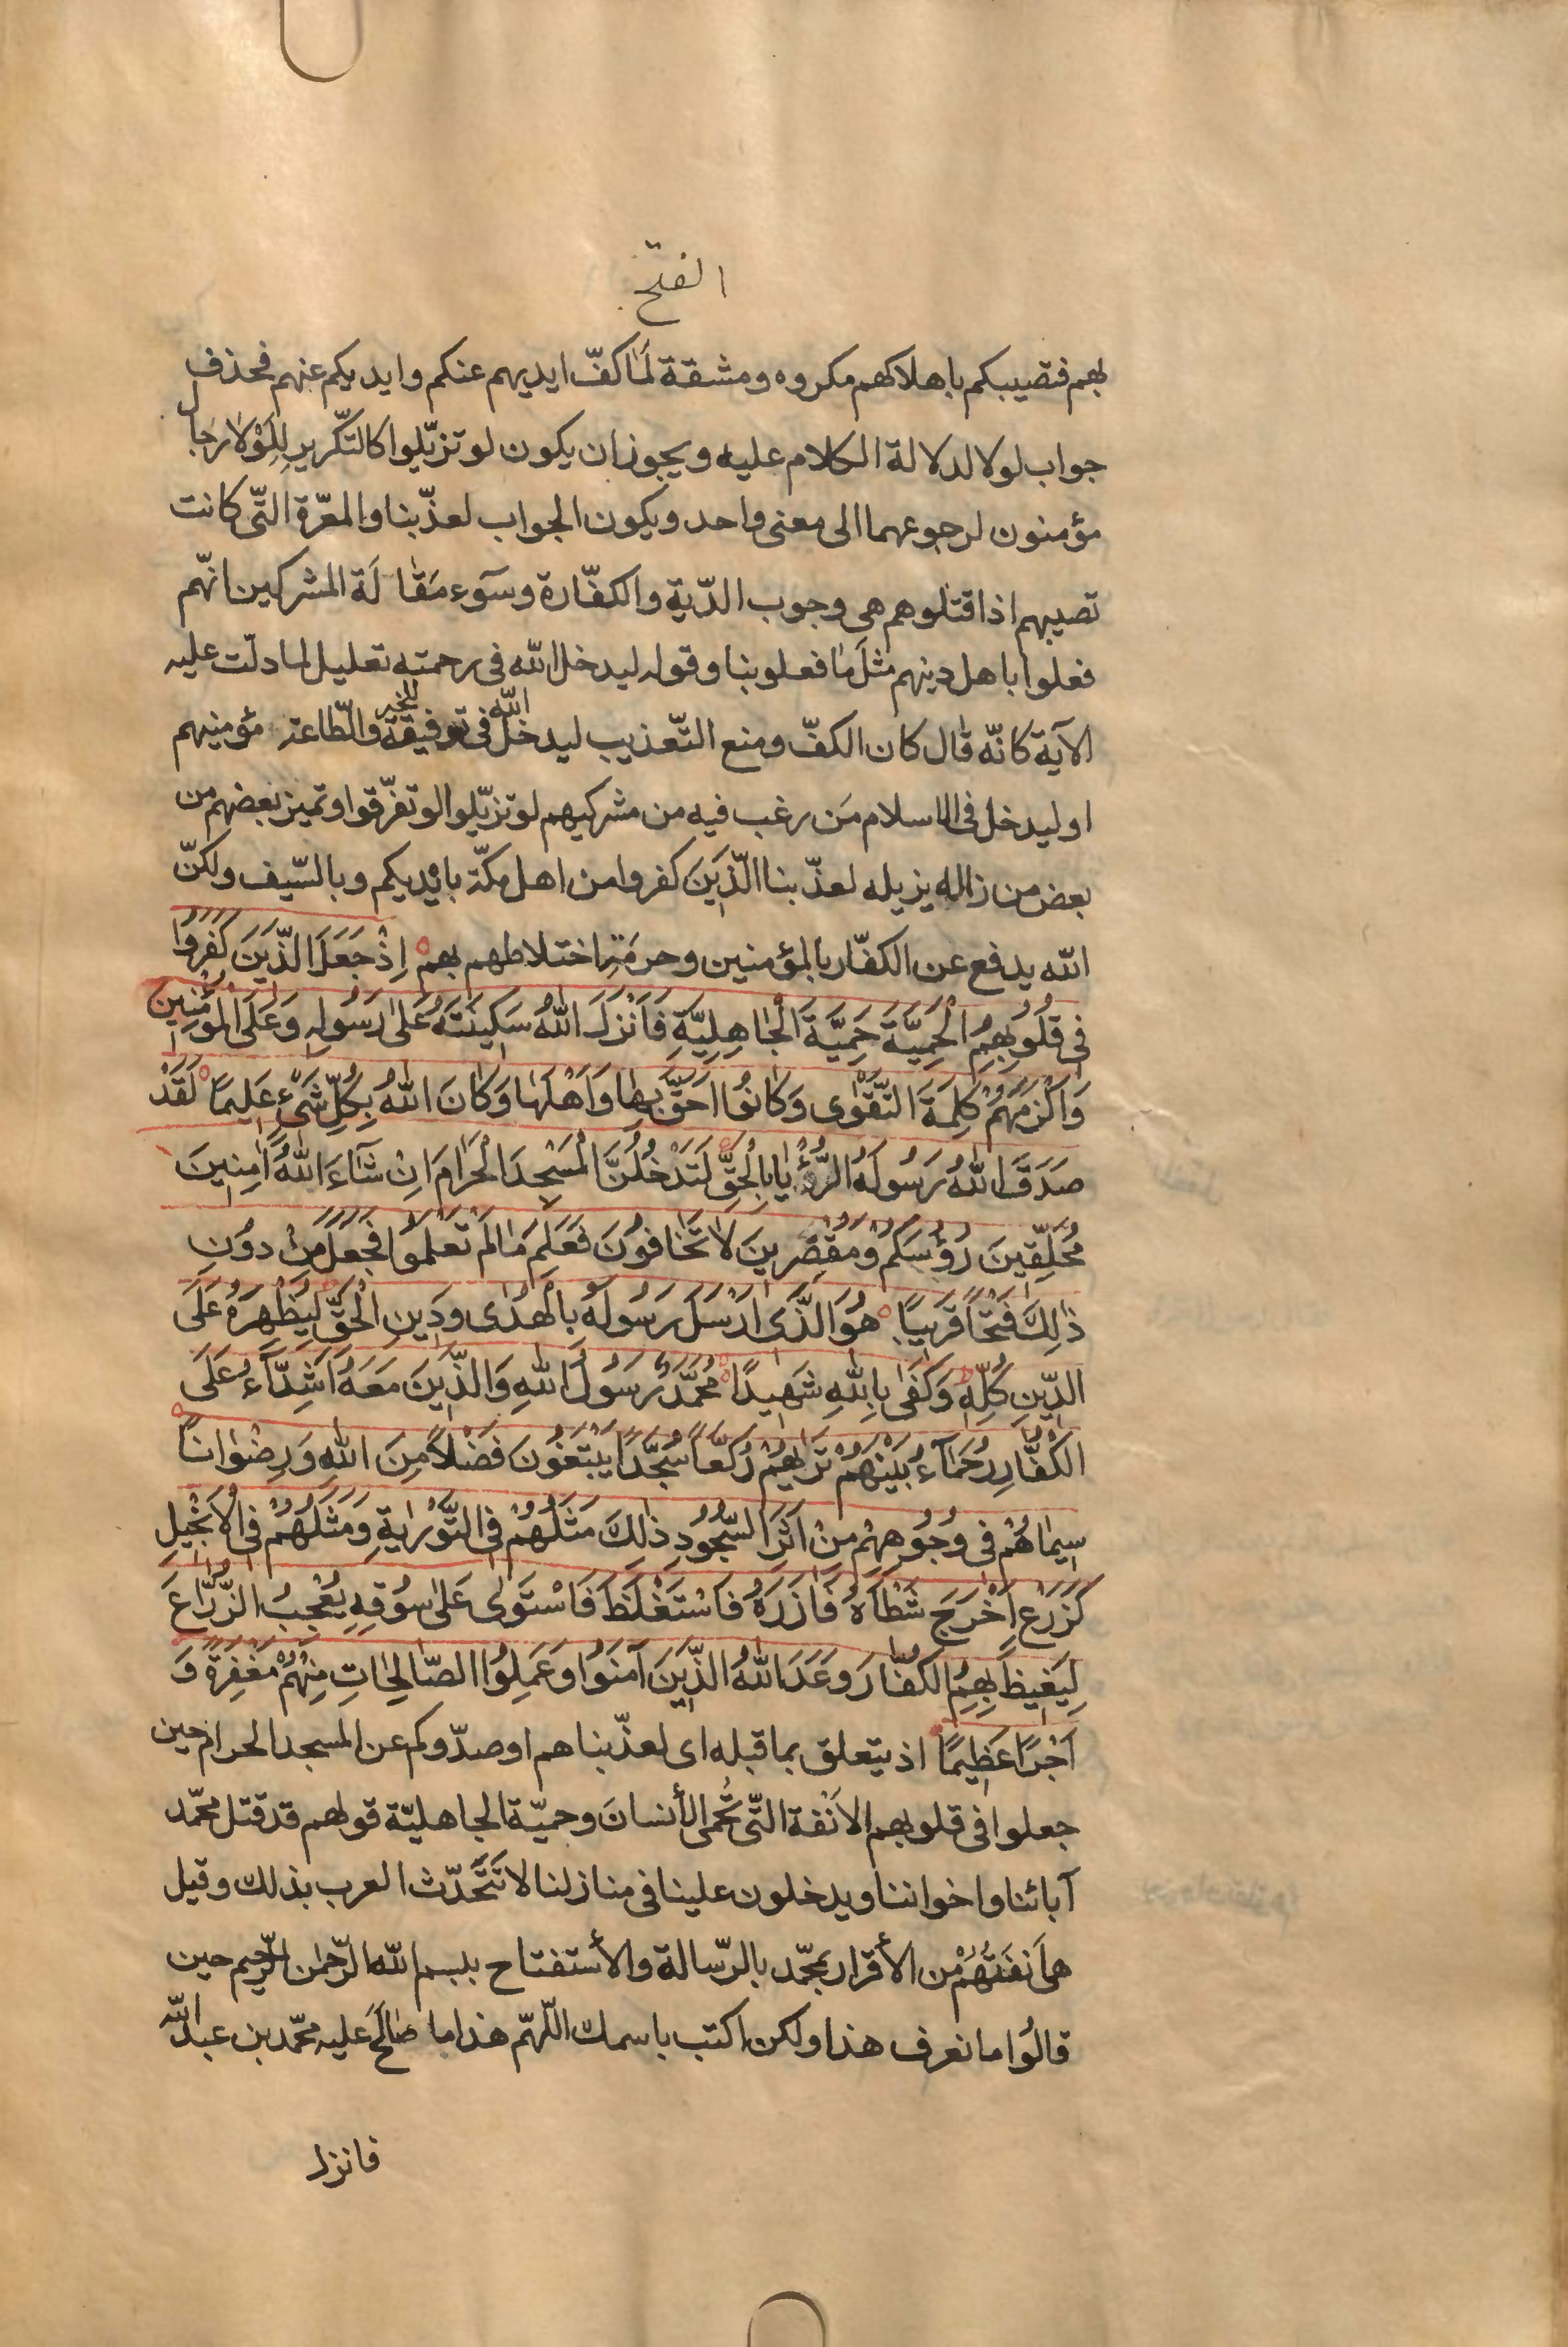 الفتح
بهم فتصيبكم باهلاكهم مكروه ومشقة لَمٰا كفّ ايديهم عنكم وايديكم عنهم فحذف
جواب لولا لدلالة الكلام عليه ويجوز ان يكون لو تزيّلوا كالتكّرير لِلَوْلٰا رجٰال
مؤمنون لرجوعهما الى معنى واحد ويكون الجواب لعذّبنا والمعّرة التّى كانت
تصيبهم اذا قتلوهم هى وجوب الدّية والكفّارة وسوٓء مَقٰالَة المشركين انهّم
فعلوا باهل دينهم مثلَ مٰا فعلو بنا وقوله ليدخل الله فى رحمته تعليل لما دلّت عليه
الآية كانّه قال كان الكفّ ومنع التّعذيب ليدخل الله فى توفيقة للخير والّطاعة مؤمنيهم
او ليدخل فى الاسلام مَن رغب فيه من مشركيهم لو تزيّلوا لو تفرّقوا وتميز بعضهم من
بعض من زاله يزيله لعذّبنا الّذَينَ كفروا من اهل مكّة بايْديكم وبالسّيف ولكنّ
الله يدفع عن الكفّار بالمؤمنين وحرمَةِ اختلاطهم بهم اِذْ جَعَلَ الذّينَ كَفَروُا
فى قُلُوبِهِمُ الْحَمِيَّةَ حَمِيَّةَ الْجٰاهِلِيَّةِ فَاَنْزَلَ اللّٰهُ سَكينَتَهُ عَلىٰ رَسُولِهِ وَعَلَى الْمُؤْمِنينَ
وَاَلْزَمَهُمْ كَلِمَةَ التَّقْوٰى وَكٰانُوا اَحَقَّ بِهٰا وَاَهْلَهٰا وَكٰانَ اللّٰهُ بِكُلِّ شَىْءٍ عَليمًا لَقَدْ
صَدَقَ اللّٰهُ رَسُولَهُ الرُّؤْيٰا بِالْحَقِّ لَتَدْخُلُنَّ الْمَسْجِدَ الْحَرٰامَ اِنْ شٰآءَ اللّٰهُ آمِنِينَ
مُحَلِّقينَ رُؤُسَكُمْ وَمُقَصِّرينَ لاٰ تَخٰافُونَ فَعَلِمَ مٰا لَمْ تَعْلَمُوا فَجَعَلَ مِنْ دوُنِ
ذٰلِكَ فَتْحًا قَريبًا هُوَ الَّذى اَرْسَلَ رَسُولَهُ بِالْهُدٰى وَدينِ الْحَقِّ لِيُظْهِرَهُ عَلَى
الدّينِ كُلِّهِ وَكَفىٰ بِاللّٰهِ شَهيدًا مُحَمَّدٌ رَسُولُ اللّٰهِ وَالَّذينَ مَعَهُ اَشِدّٰآءُ عَلَى
الْكُفّٰارِ رُحَمٰآءُ بَيْنَهُمْ تَرٰيهُمْ رُكَّعًا سُجَّدًا يَبْتَغُونَ فَضْلاً مِنَ اللّٰهِ وَرِضْوٰانًا
سيمٰاهُمْ فى وُجُوهِهِمْ مِنْ اَثَرِ السُّجُودِ ذٰلِكَ مَثَلُهُمْ فِى التَّوْرٰيةِ وَمَثَلُهُمْ فِى الْاِنْجيلِ
كَزَرْعٍ اَخْرَجَ شَطْأَهُ فَآزَرَهُ فَاسْتَغْلَظَ فَاسْتَوٰى عَلىٰ سُوقِهِ يُعْجِبُ الزُّرّٰاعَ
لِيَغيظَ بِهِمُ الْكُفّٰارَ وَعَدَ اللّٰهُ الَّذينَ آمَنُوا وَعَمِلُوا الصّٰالِحٰاتِ مِنْهُمْ مَغْفِرَةً وَ
اَجْرًا عَظِيمًا اذ يتعلق بما قبله اى لعذّبناهم او صدّوكم عن المسجد الحرام حين
جعلوا فى قلوبهم الاَنْفة التّى تُحمى الأنسانَ وحميّة الجاهليّة قولهم قد قتل محمّد
آبائنا واخواننا ويدخلون علينا فى منازلنا لا تَتَّحدّث العرب بذلك وقيل
هى اَنفَتُهُمْ من الأقرار بمحّمد بالرّسالة والأستفتاح ببسم الله الرّحمٰن الرّحيم حين
قالُوا ما نعرف هذا ولكن اكتب باسمك اللّهمّ هذا ما صٰالَحَ عليه محمّد بن عبدالله
فانزل